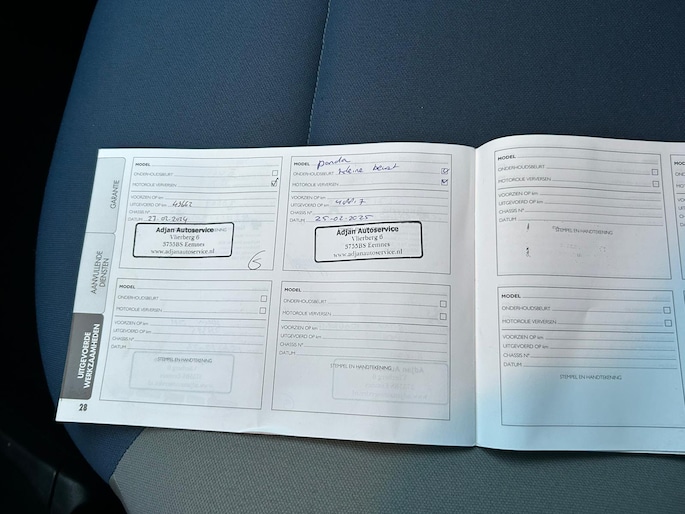 GARANTIE
AANVULLENDE
DIENSTEN
UITGEVOERDE
WERKZAAMHEDEN
28
MODEL
ONDERHOUDSBEURT
MOTOROLIE VERVERSEN
VOORZIEN OP km
UITGEVOERD OP km 43662
CHASSIS N°
DATUM 27-02-2024
Adjan Autoservice
Vlierberg 6
5735BS Eemnes
www.adjanautoservice.nl
MODEL panda
ONDERHOUDSBEURT kleine beurt
MOTOROLIE VERVERSEN
VOORZIEN OP km
UITGEVOERD OP km
CHASSIS N°
DATUM 25-02-2025
Adjan Autoservice
Vlierberg 6
5755BS Eemnes
www.adjanautoservice.nl
MODEL
ONDERHOUDSBEURT
MOTOROLIE VERVERSEN
VOORZIEN OP km
UITGEVOERD OP km
CHASSIS N°
DATUM
STEMPEL EN HANDTEKENING
MODEL
ONDERHOUDSBEURT
MOTOROLIE VERVERSEN
VOORZIEN OP km
UITGEVOERD OP km
CHASSIS N°
DATUM
STEMPEL EN HANDTEKENING
MODEL
ONDERHOUDSBEURT
MOTOROLIE VERVERSEN
VOORZIEN OP km
UITGEVOERD OP km
CHASSIS N°
DATUM
STEMPEL EN HANDTEKENING
MODEL
ONDERHOUDSBEURT
MOTOROLIE VERVERSEN
VOORZIEN OP km
UITGEVOERD OP km
CHASSIS N°
DATUM
STEMPEL EN HANDTEKENING